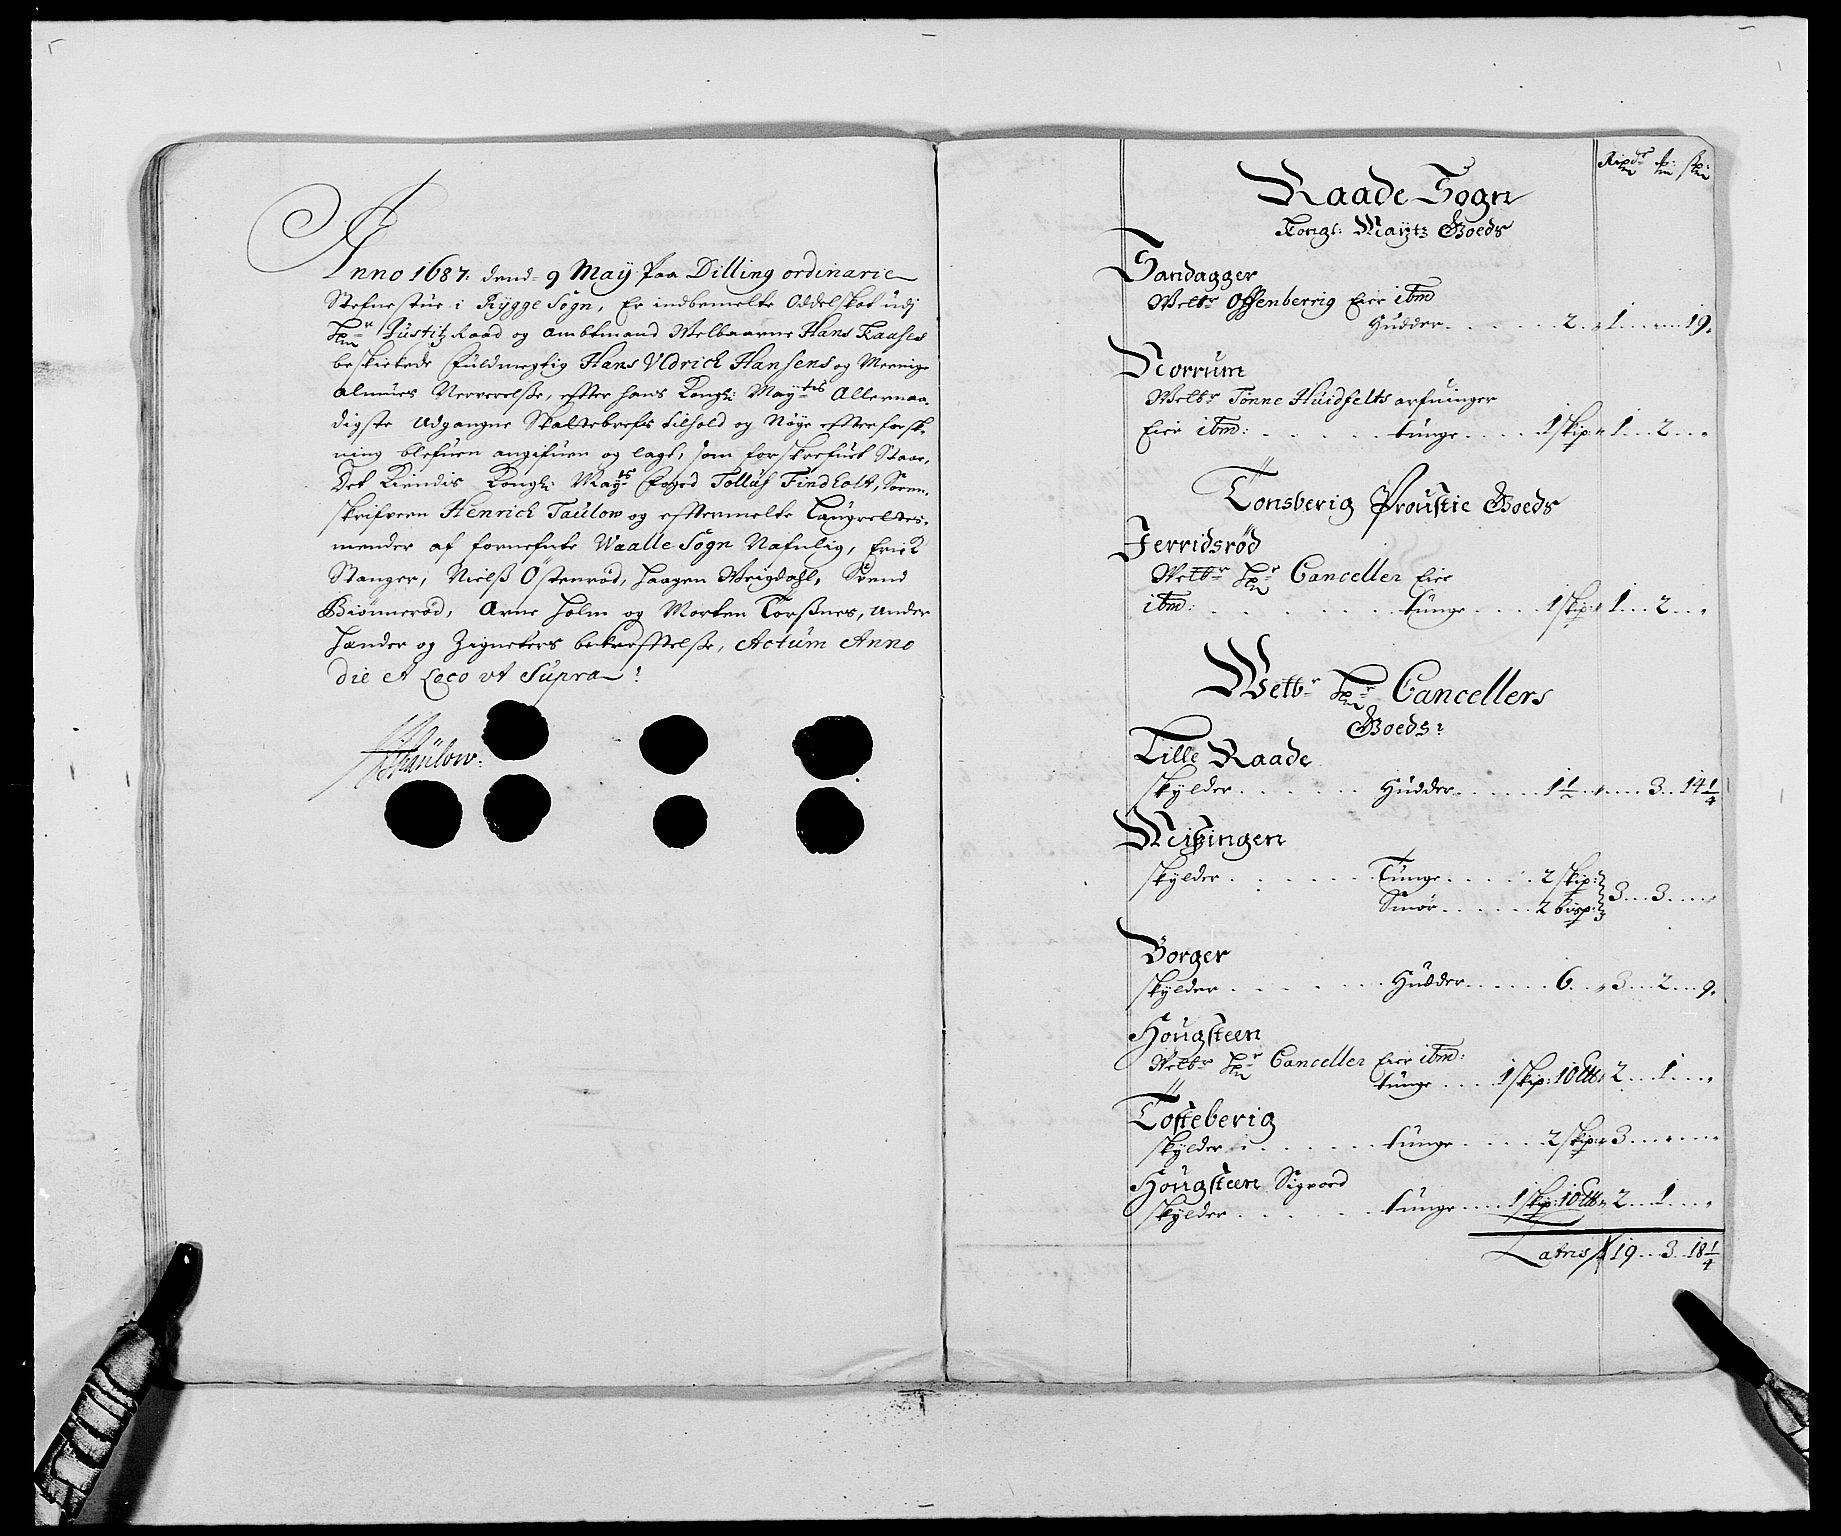 Anno 1687. dend 9 May paa Dilling ordinarie
Stefnestue i Rygge Sogn, Er indbemelte Oddelskat udj
Hr Justitz Raad og ambtmand Welbaarne Hans Kaases
beskickede fuldmegtig Hans Uldrich Hansens og Meenige
almues Nerverelße, efter hans Kongl: Maytts Allernaa-
digste udgangne Skattebrefs tilhold og Nøye efterforsk-
ning blefuen angifuen og lagt, som forskrefuet Staar,
Det Kiendis Kongl: Mayts foged Tolluf Findholt, Soren-
skrifveren Henrich Taulow og eftermelte Laugrettes-
mender af fornefnte Waalle Sogn Nafnlig, Erick
Stanger, Nielß Østenrød, Haagen Weigdahl, Svend
Biønnerød, Arne Holm og Morten Torßnes, under
Hænder og Zigneters bekreftelße, Actum Anno
die et Loco ut Supra
HThaulow:
Rixdr
Raade Sogn
Kongl: Maytz Goeds
Sandagger
Welbr Offenberrig Eier ibm
Hudder 2 1 19
Norrum
Welbr Tønne Huidfelts arfuinger
Eier ibm: tunge 1 skip: 1 2
Tonsberig Proustie Goeds
Jerridsrød
Welbr Hr Canceller Eier
ibm: tunge 1 skip: 1 2
Welbr Hr Cancellers
Goeds
Lille Raade
skylder Hudder 1½ 3 14¼
Meitzingen
skylder Tunge 2 skip:
Smør 2 bisp: 3 3
Borger
skylder Hudder 6 3 2 9
Hougsteen
Welbr Hr Canceller Eier ibm:
tunge 1 skip: 10 Ltt 2 1
Tosteberig
skylder tunge 2 skp: 3
Hougsteen Sigvord
skylder tunge 1 skip: 10 Ltt 2 1
Latris 19 3 18¼